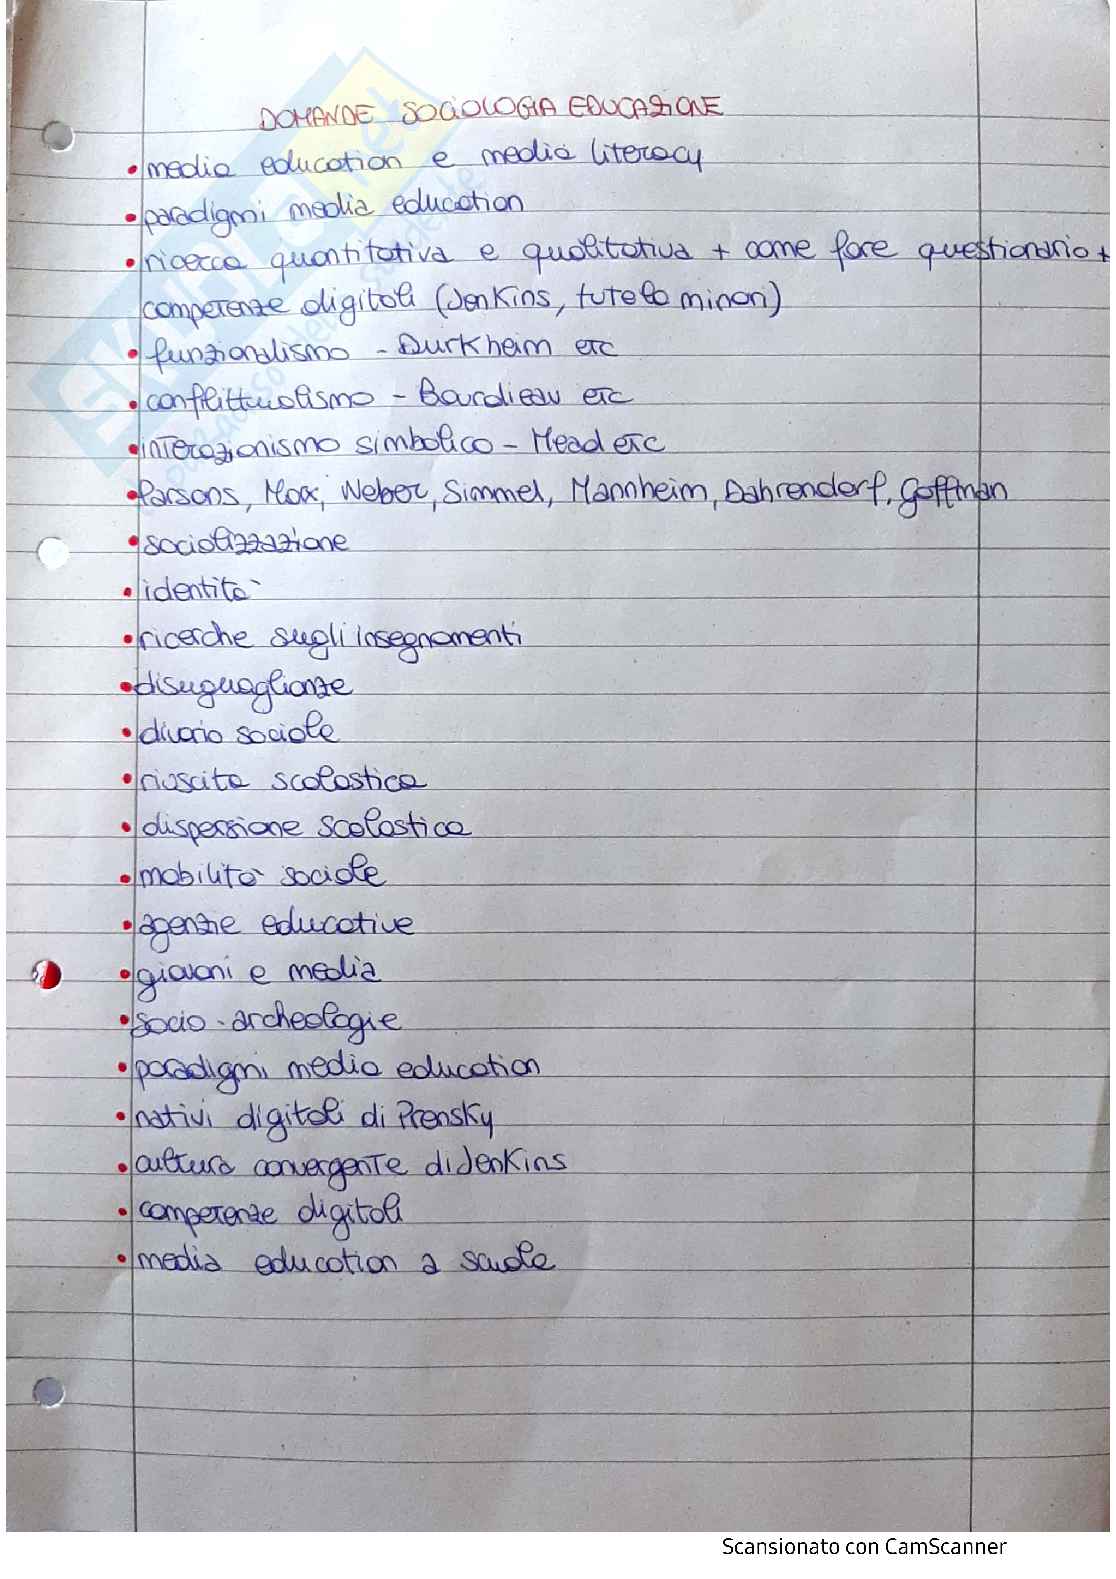 DOMANDE SOCIOLOGIA EDUCAZIONE
• media education e media literacy
• paradigmi media education
• ricerca quantitativa e qualitativa + come fare questionario +
competenze digitali (Jenkins, tutela minori)
• funzionalismo - Durkheim etc
• conflittualismo - Bourdieau etc
• interazionismo simbolico - Mead etc
• Parsons, Marx, Weber, Simmel, Mannheim, Dahrendorf, Goffman
• socializzazione
• identità
• ricerche sugli insegnamenti
• disuguaglianze
• divario sociale
• riuscita scolastica
• dispersione scolastica
• mobilità sociale
• agenzie educative
• giovani e media
• socio-archeologie
• paradigmi media education
• nativi digitali di Prensky
• cultura convergente di Jenkins
• competenze digitali
• media education a scuola
Scansionato con CamScanner